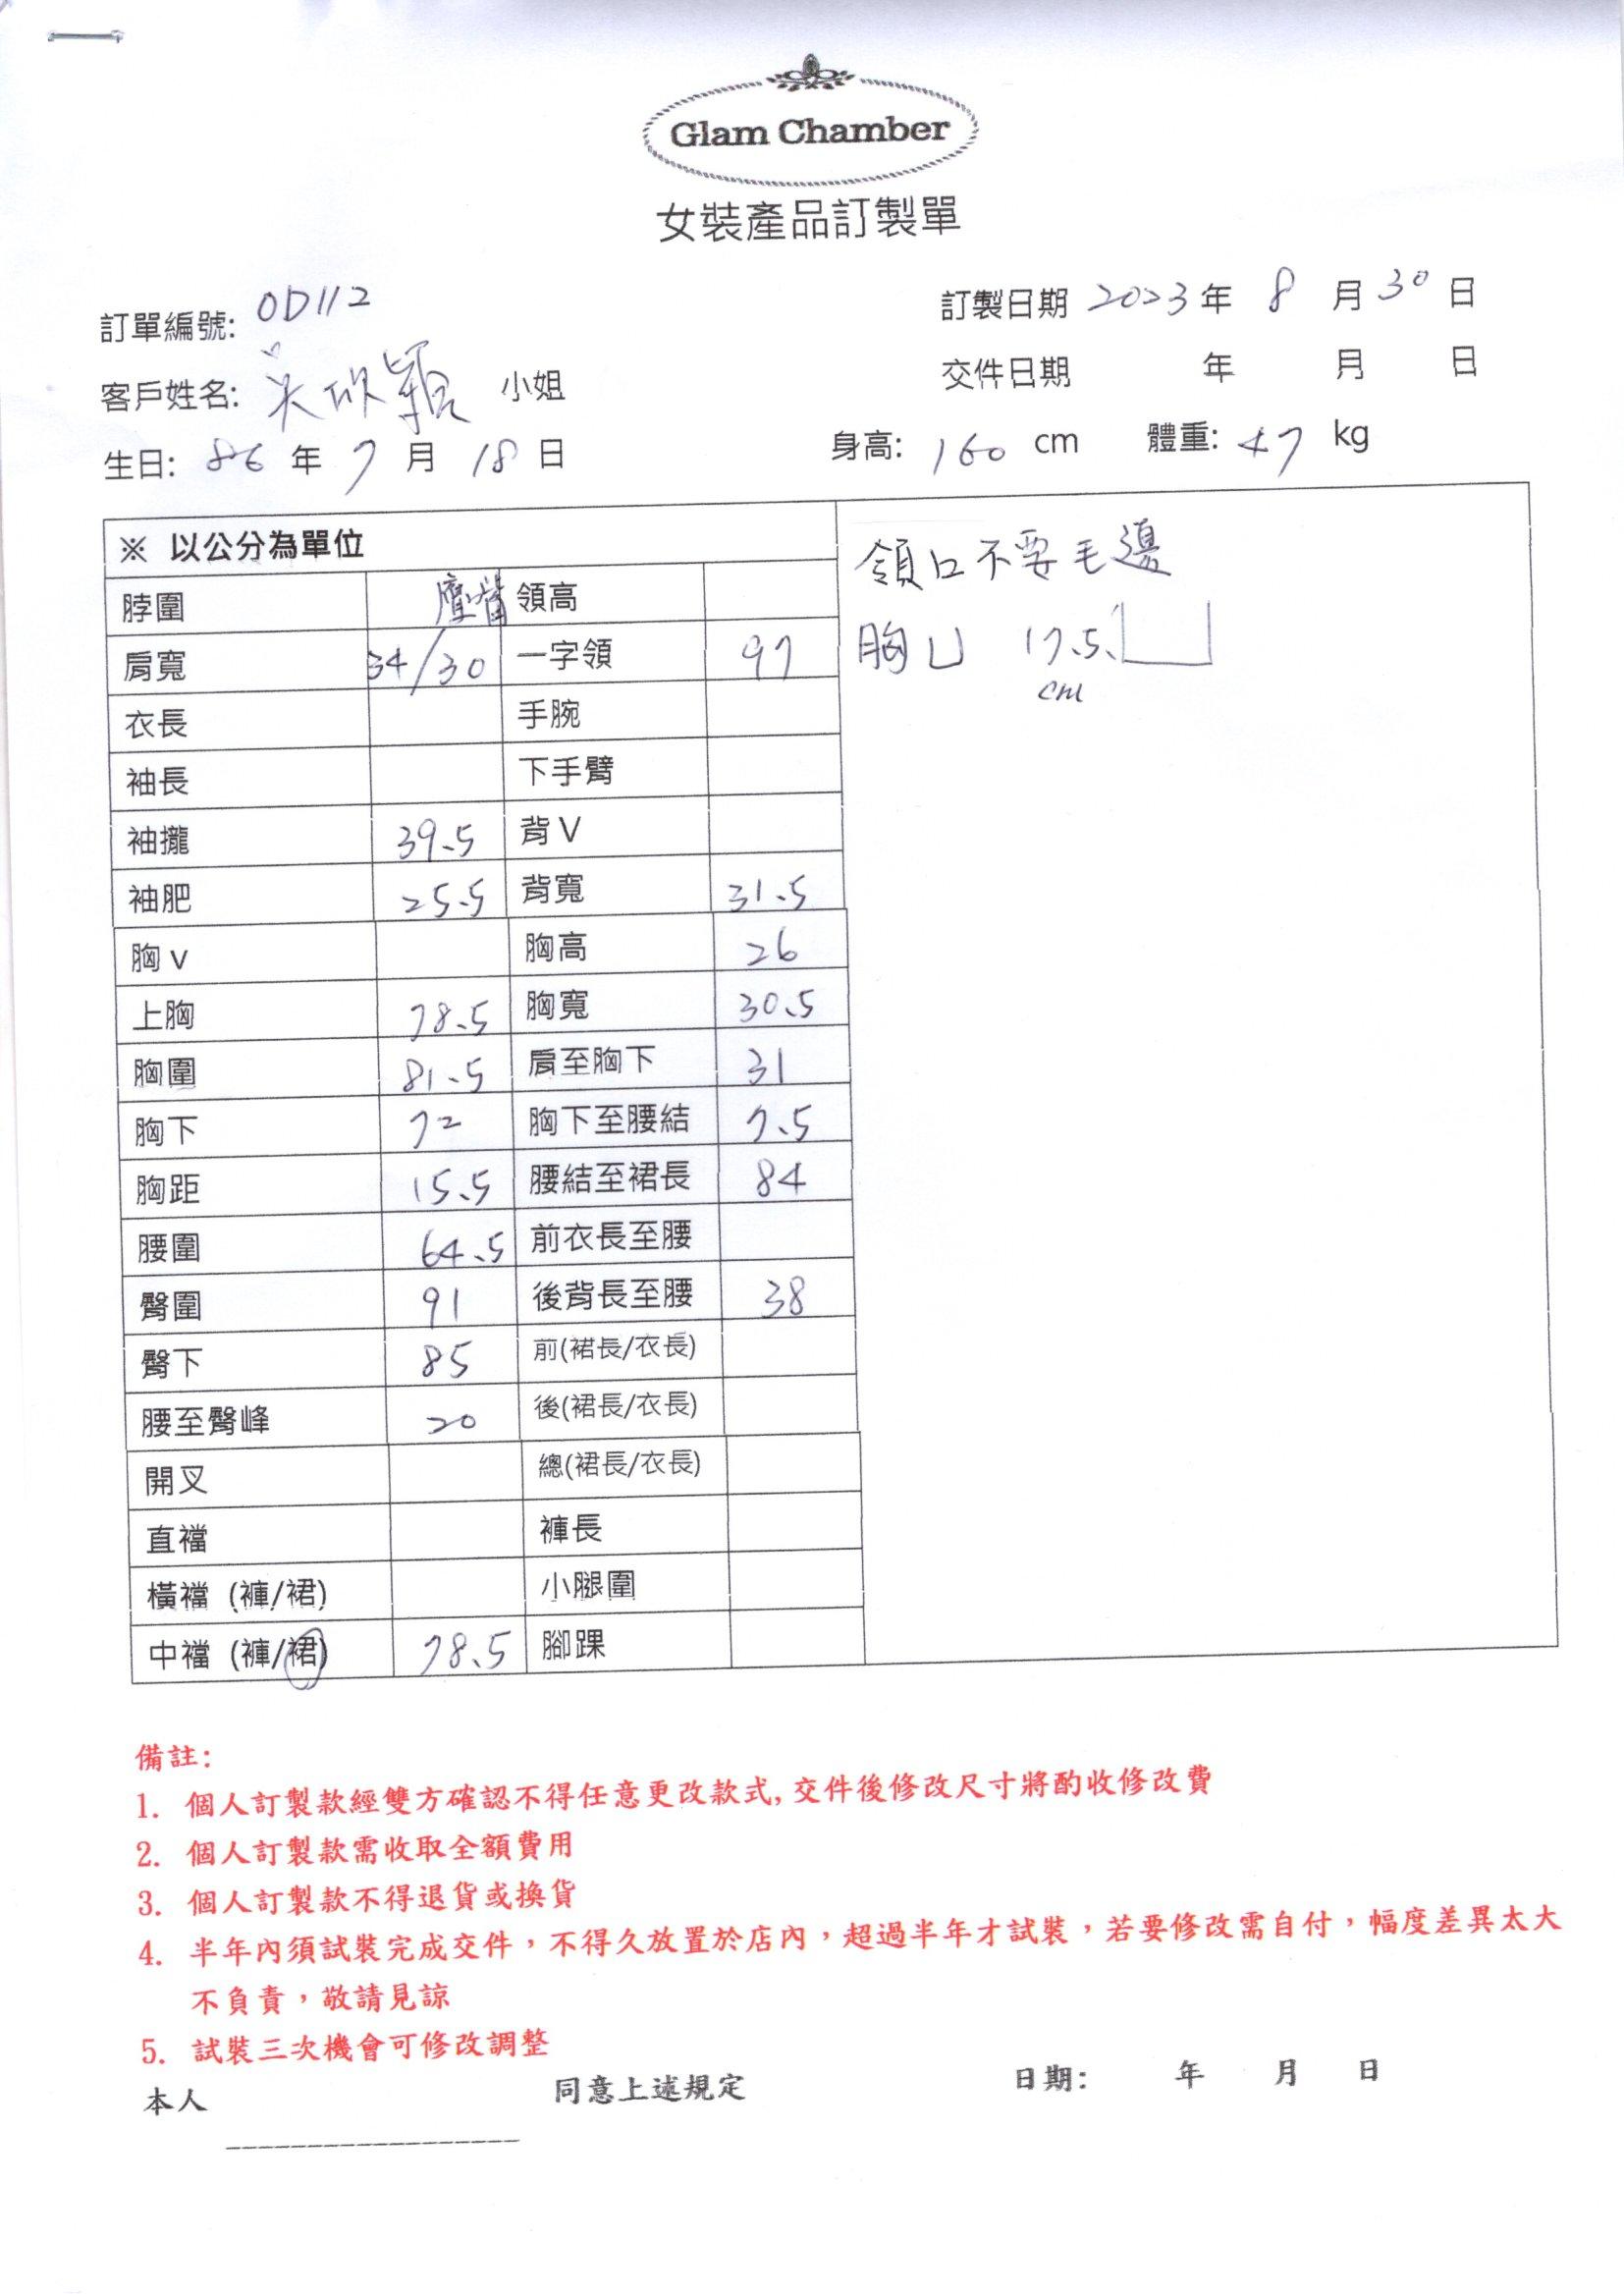 Glam Chamber
女裝產品訂製單
訂單編號: OD112
訂製日期 2023 年 8 月 30 日
客戶姓名: 吴欣穎 小姐
交件日期 年 月 日
生日: 86 年 7 月 18 日
身高: 160 cm 體重: 47 kg
※ 以公分為單位
領口不要毛邊
胸凵 17.5
cm
脖圍 領高
肩寬 34/30 一字領 97
衣長 手腕
袖長 下手臂
袖攏 39.5 背V
袖肥 25.5 背寬 31.5
胸v 胸高 26
上胸 78.5 胸寬 30.5
胸圍 81.5 肩至胸下 31
胸下 72 胸下至腰結 7.5
胸距 15.5 腰結至裙長 84
腰圍 64.5 前衣長至腰
臀圍 91 後背長至腰 38
臀下 85 前(裙長/衣長)
腰至臀峰 20 後(裙長/衣長)
開叉 總(裙長/衣長)
直襠 褲長
橫襠 (褲/裙) 小腿圍
中襠 (褲/裙) 78.5 腳踝
備註:
1. 個人訂製款經雙方確認不得任意更改款式, 交件後修改尺寸將酌收修改費
2. 個人訂製款需收取全額費用
3. 個人訂製款不得退貨或換貨
4. 半年內須試裝完成交件，不得久放置於店內，超過半年才試裝，若要修改需自付，幅度差異太大
不負責，敬請見諒
5. 試裝三次機會可修改調整
本人 同意上述規定 日期: 年 月 日